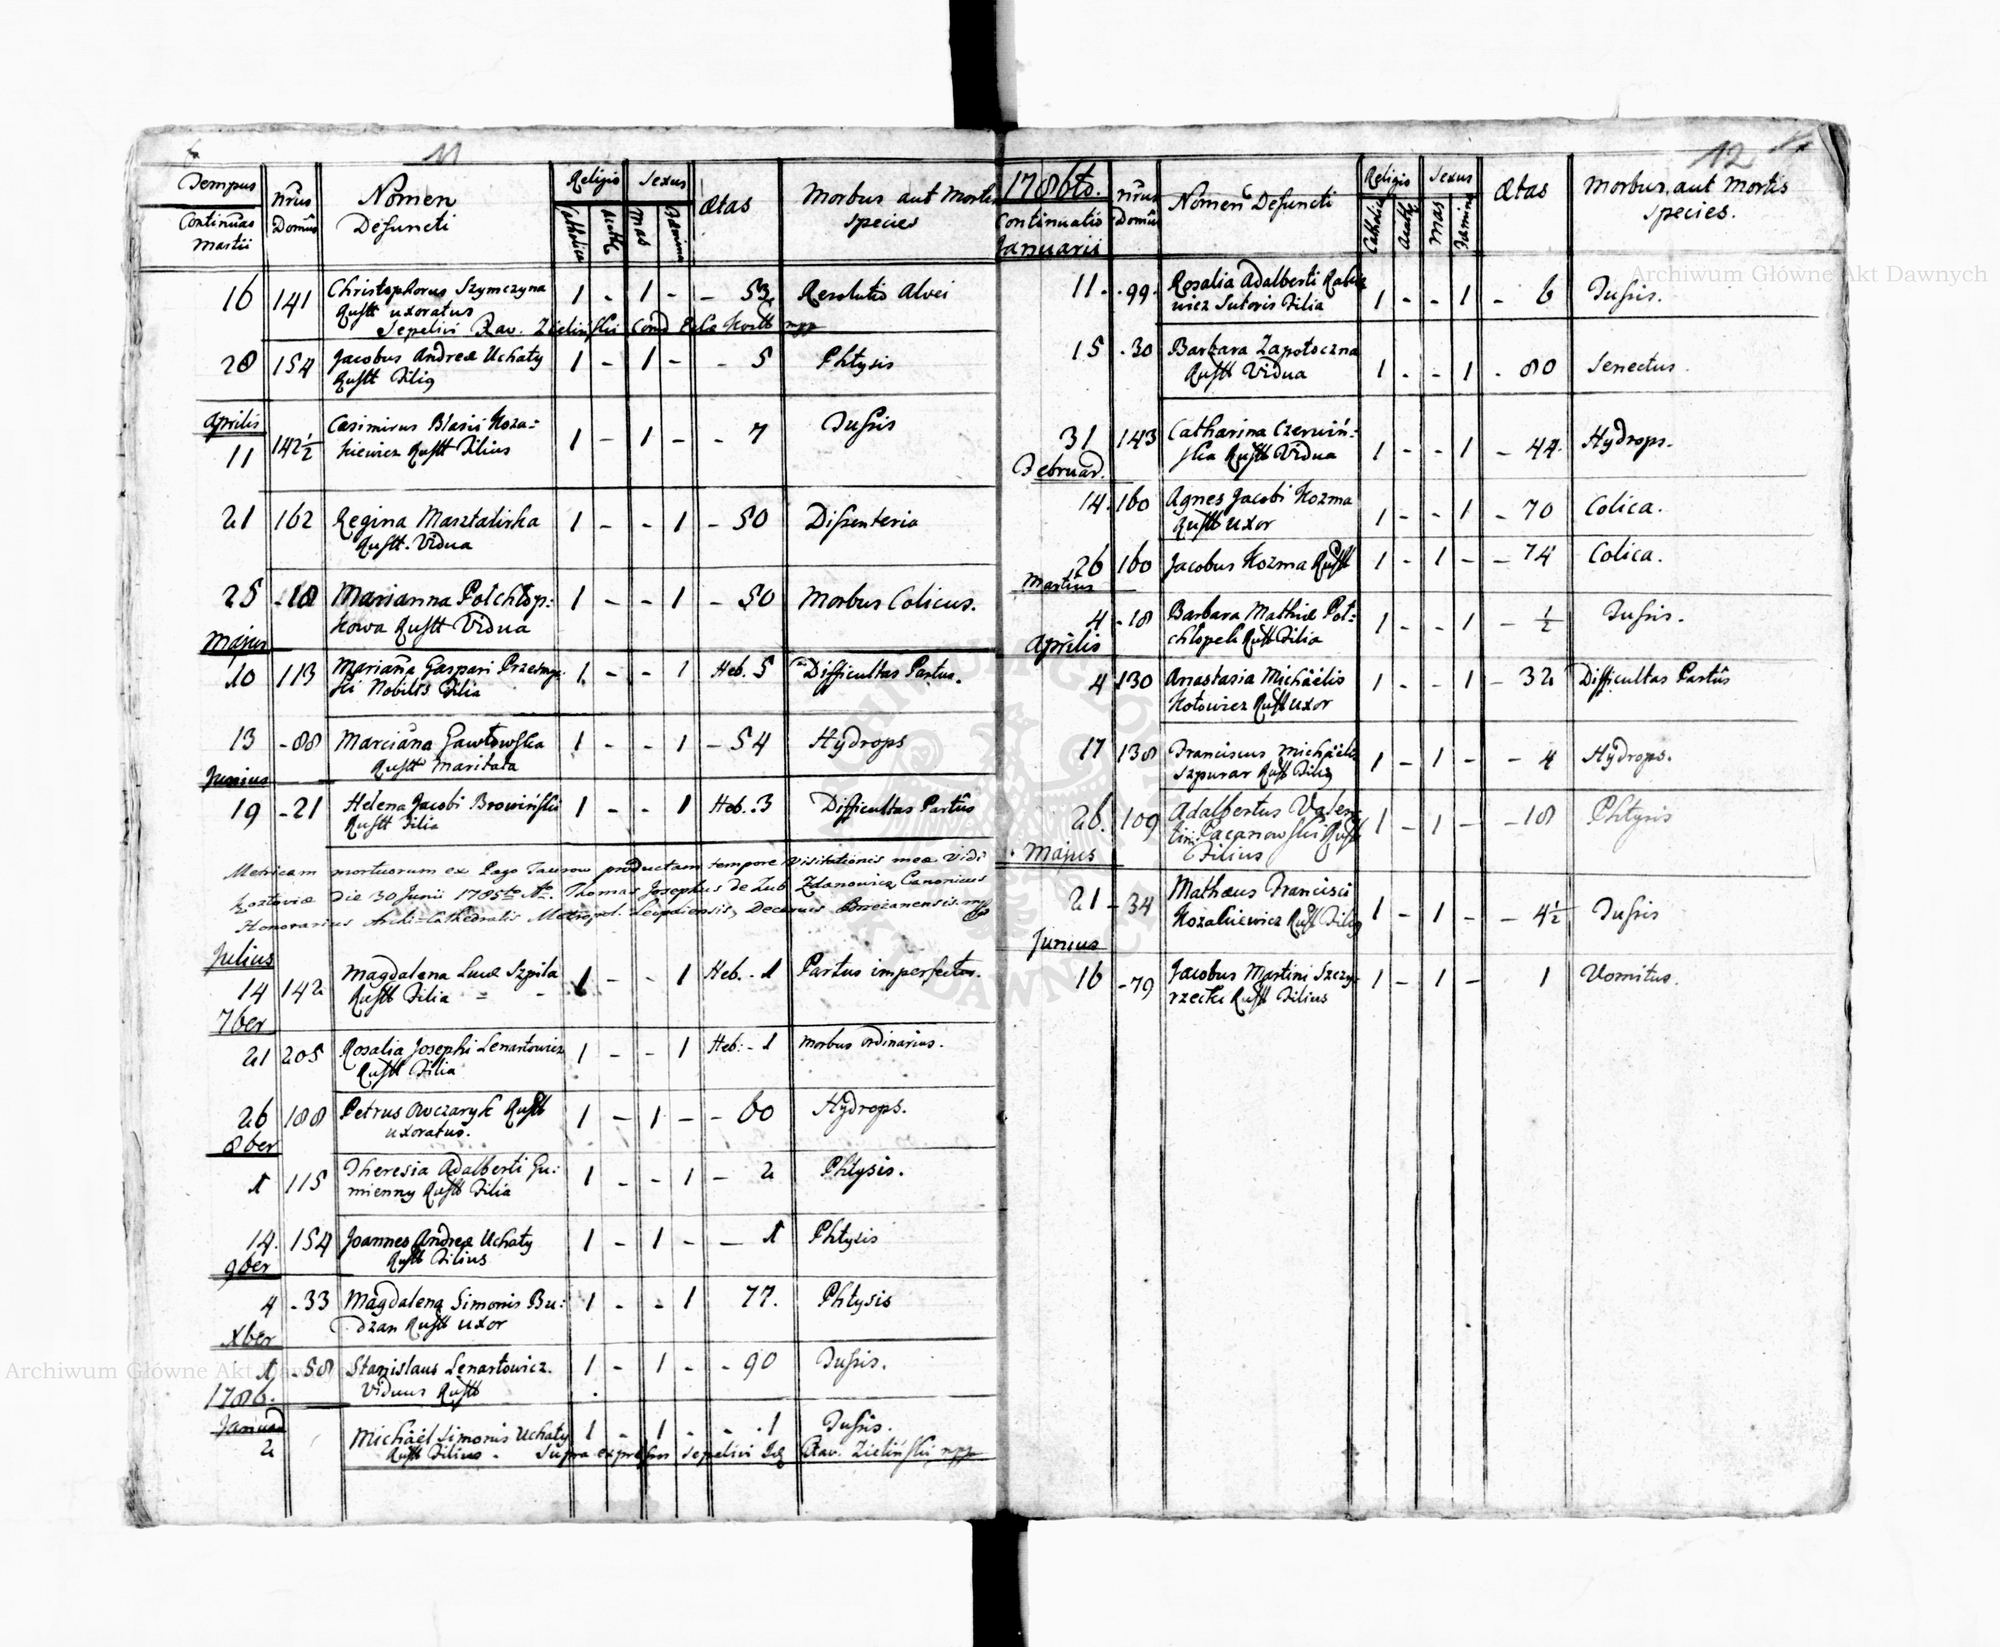 11
Tempus
Continuatio Martii
Nrus Domus
Nomen Defuncti
Religio
Catholica
Sexus
Mas
Fæmina
Ætas
Morbus aut Mortis species
16 141 Christophorus Szymczyna 1 - 1 - - 53 Resolutio Alvei
Rustt uxoratus
Sepelivi Xav. Zieliński
28 154 Jacobus Andreæ Uchaty 1 - 1 - - 5 Phtysis
Rustt Filig
Aprilis
11 142½ Casimirus Blasii Koza= 1 - 1 - - 7 Tussis
kiewicz Rustt Filius
21 162 Regina Masztalirka 1 - - 1 - 50 Dissenteria
Rustt. Vidua
25 -18 Marianna Potchłop: 1 - - 1 - 50 Morbus Colicus.
kowa Rustt Vidua
Majus
10 113 Mariaña Gaspari Przetmy 1 - - 1 Heb. 5 Difficultas Partus.
ski Nobilis Filia
13 -88 Marciana Gawłowska 1 - - 1 - 54 Hydrops
Rustt maritata
Junius
19 -21 Helena Jacobi Browiński 1 - - 1 Heb. 3 Difficultas Partûs
Rustt Filia
Metricam mortuorum ex Pago Taurow productam tempore Visitationis meæ Vidi
Kozloviæ die 30 Junii 1785to Ao. Thomas Josephus de Zub Zdanowicz Canonicus
Honorarius Archi-Cathedralis Metropol. Leopoliensis, Decanus Brzezanensis. mp
Julius
14 142 Magdalena Lucæ Szpila 1 - - 1 Heb. - 1 Partus imperfectus.
Rustt Filia
7ber
21 205 Rosalia Josephi Lenartowicz 1 - - 1 Heb: - 1 Morbus ordinarius.
Rustt Filia
26 188 Petrus Owczaryk Rustt 1 - 1 - - 60 Hydrops.
uxoratus.
8ber
1 115 Theresia Adalberti Gu: 1 - - 1 - 2 Phtysis.
mienny Rustt Filia
14. 154 Joannes Andreæ Uchaty 1 - 1 - - 1 Phtysis
Rustt Filius
9ber
4 -33 Magdalena Simonis Bu: 1 - - 1 77. Phtysis
dzan Rustt uxor
Xber
1 -58 Stanislaus Lenartowicz. 1 - 1 - - 90 Tussis.
Viduus Rustt
1786.
Januar
2 Michäel Simonis Uchaty 1 - 1 - - 1 Tussis.
Rustt Filius - Supra expressus sepelivi Xav. Zieliński mpp
12
1786to.
Continuatio Januarii
Nrus Domus
Nomen Defuncti
Religio
Catholica
Sexus
Mas
Fæmina
Ætas
Morbus aut Mortis species.
11. -99- Rosalia Adalberti 1 - - 1 - 6 Tussis.
wicz Sutoris Filia
15 -30 Barbara Zapotoczna 1 - - 1 - 80 Senectus.
Rustt Vidua
31 143 Catharina Czerwiń= 1 - - 1 - 44. Hydrops.
ska Rustt Vidua
Februar.
14. 160 Agnes Jacobi Kozma 1 - - 1 - 70 Colica.
Rustt uxor
26 160 Jacobus Kozma Rustt 1 - 1 - - 74 Colica.
Martius
4 -18 Barbara Mathiæ Pot= 1 - - 1 - ½ Tussis.
chłopek Rustt Filia
Aprilis
4 130 Anastasia Michäelis 1 - - 1 - 32 Difficultas Partûs
Kotowicz Rustt uxor
17 138 Franciscus Michäelis 1 - 1 - - 4 Hydrops.
Szpunar Rustt Filig
26. 109 Adalbertus Valen= 1 - 1 - - 18 Phtysis
tini Pacanowski Rustt
Filius
Majus
21 -34 Mathæus Francisci 1 - 1 - - 4½ Tussis
Kozakiewicz Rustt Filig
Junius
16 -79 Jacobus Martini Szczy= 1 - 1 - 1 Vomitus.
rzecki Rustt Filius
Archiwum Główne Akt Dawnych
Archiwum Główne Akt Dawnych